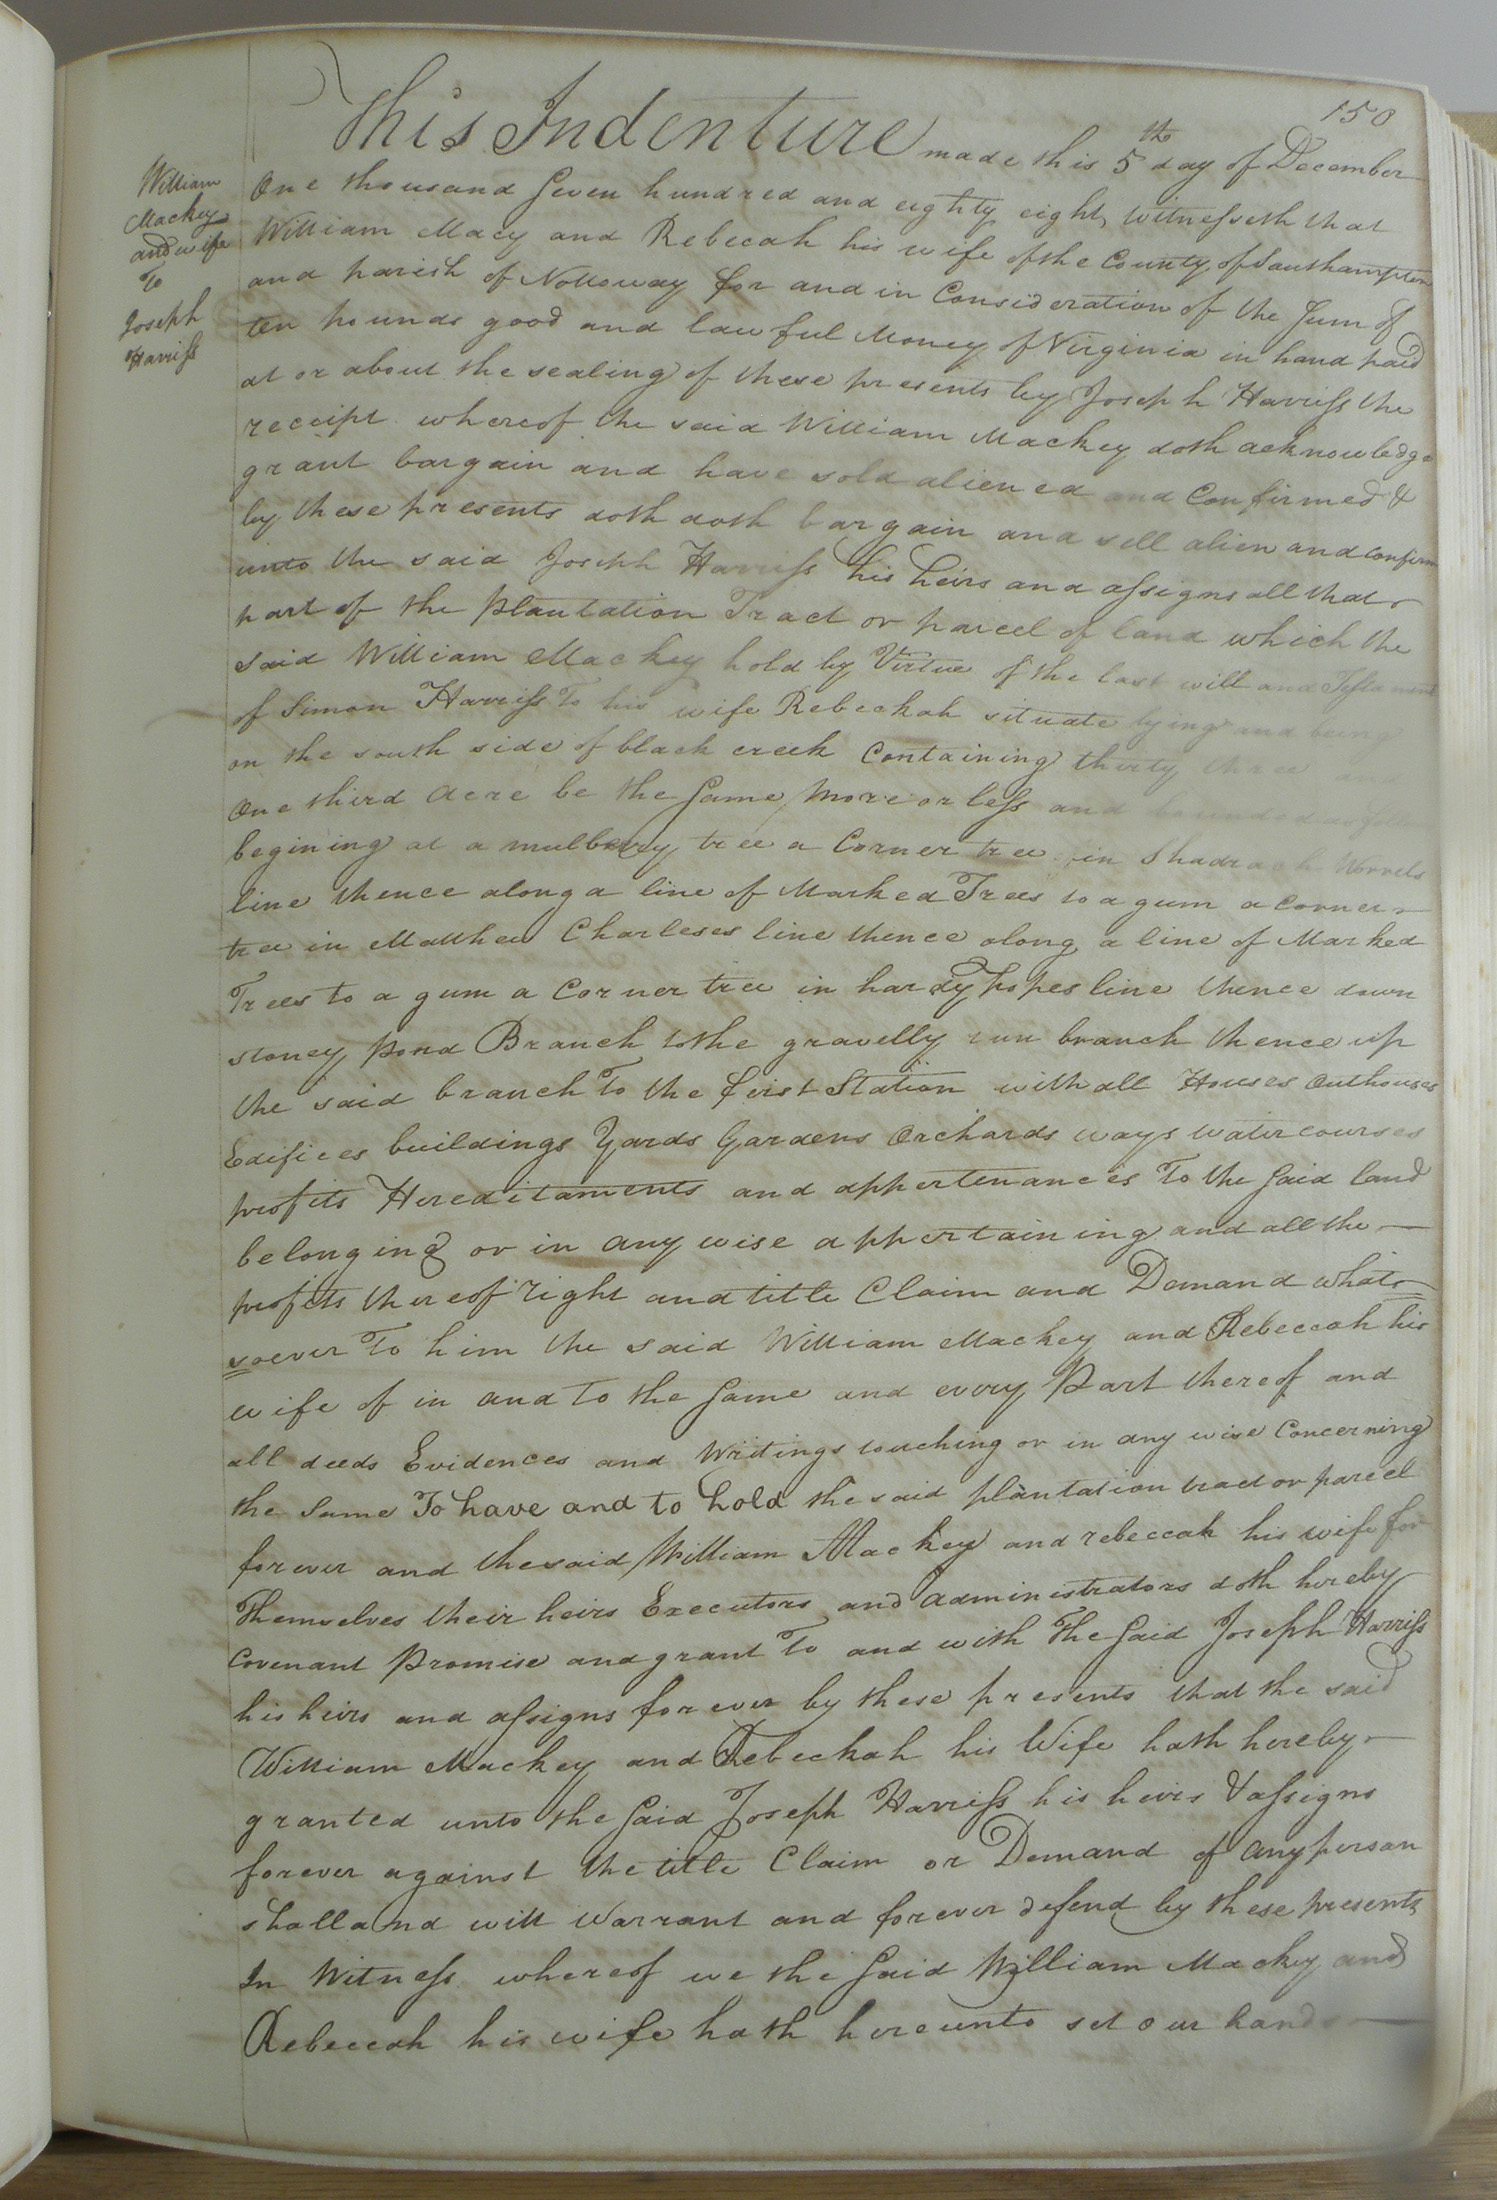 150
William
Mackey
and wife
To
Joseph
Harriss
This Indenture made this 5th day of December
One thousand Seven hundred and eighty eight, witnesseth that
William Macy and Rebecah his wife of the County of Southampton
and parish of Nottoway for and in Consideration of the Sum of
ten pounds good and lawful Money of Virginia in hand paid
at or about the sealing of these presents by Joseph Harriss the
receipt whereof the said William Mackey doth acknowledge
grant bargain and have sold aliened and Confirmed &
by these presents doth doth bargain and sell alien and confirm
unto the said Joseph Harriss his heirs and assigns all that
part of the plantation Tract or parcel of land which the
said William Mackey hold by Virtue of the last will and Testament
of Simon Harriss To his wife Rebeckah situate lying and being
on the south side of black creek Containing thirty three and
One third acre be the Same more or less and bounded as
begining at a mulberry tree a Corner tree in Shadrach Worrels
line thence along a line of Marked Trees to a gum a corner
tree in Matthew Charleses line thence along a line of Marked
Trees to a gum a Corner tree in hardy popes line thence down
stoney pond Branch to the gravelly run branch thence up
the said branch To the first Station with all Houses outhouses
Edifices buildings Yards Gardens Orchards ways watercourses
profits Hereditaments and appertenances To the Said land
belonging or in any wise appertaining and all the
profits thereof right and title Claim and Demand whats
soever To him the said William Mackey and Rebeccah his
wife of in and To the Same and every Part thereof and
all deeds Evidences and Writings touching or in any wise Concerning
the Same To have and to hold the said plantation tract or parcel
forever and the said William Mackey and rebeccah his wife for
Themselves their heirs Executors and administrators doth hereby
Covenant Promise and grant To and with The Said Joseph Harriss
his heirs and assigns forever by these presents that the said
William Mackey and Rebeckah his Wife hath hereby
granted unto the Said Joseph Harriss his heirs & assigns
forever against the title Claim or Demand of any person
shall and will Warrant and forever defend by these presents
In Witness whereof we the Said William Mackey and
Rebeccah his wife hath hereunto set our hands